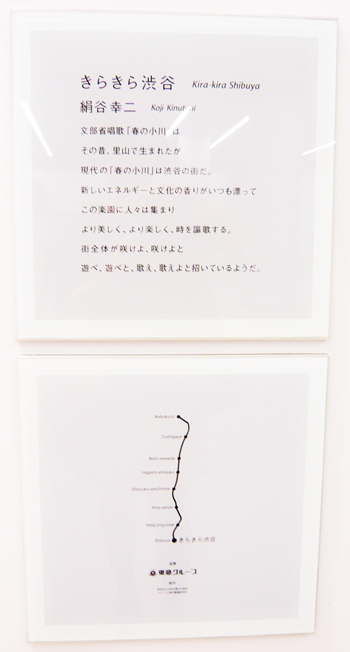 きらきら渋谷 Kira-kira Shibuya
絹谷幸二 Koji Kinutani
文部省唱歌「春の小川」は
その昔、里山で生まれたが
現代の「春の小川」は渋谷の街だ。
新しいエネルギーと文化の香りがいつも漂って
この楽園に人々は集まり
より美しく、より楽しく、時を謳歌する。
街全体が咲けよ、咲けよと
遊べ、遊べと、歌え、歌えよと招いているようだ。
Zoshigaya
Nishi-waseda
Higashi-shinjuku
Shinjuku-sanchome
Kita-sando
Meiji-jingumae
Shibuya きらきら渋谷
東急グループ